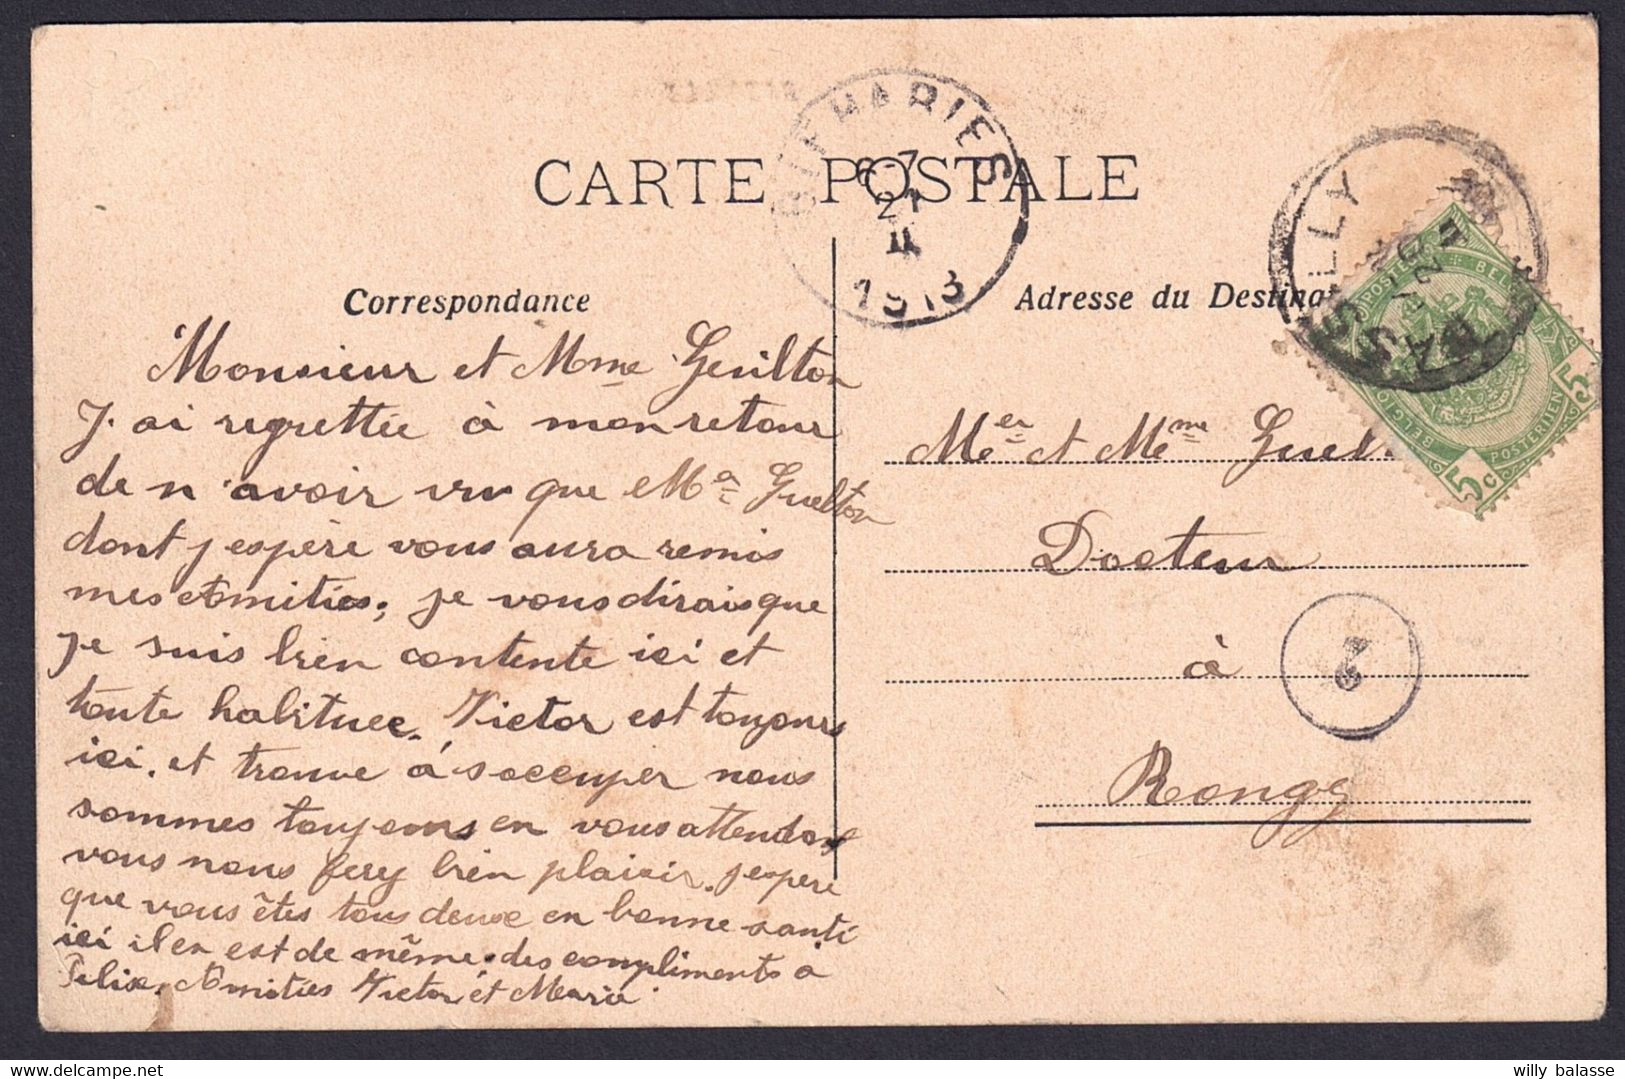 CARTE POSTALE
Correspondance
Monsieur et Mme Guilton
J. ai regrettée à mon retour
de n'avoir vu que Ma Guelton
dont j espère vous aura remis
mes Amitiés, je vous dirais que
je suis bien contente ici et
toute habituee. Victor est toujours
ici. et trouve à s'occuper nous
sommes toujours en vous attendant
vous nous ferez bien plaisir. j espere
que vous êtes tous deux en bonne santé
ici il en est de même. des compliments à
Felix. Amitiés Victor et Maria
MARIES
6-7
21
II
1913
Adresse du Destinat
Mer et Mme Guel
Docteur
à
Rongy
2
LLY
POSTES BELG
BELGIQ POSTERIEN
5c
5
willy balasse